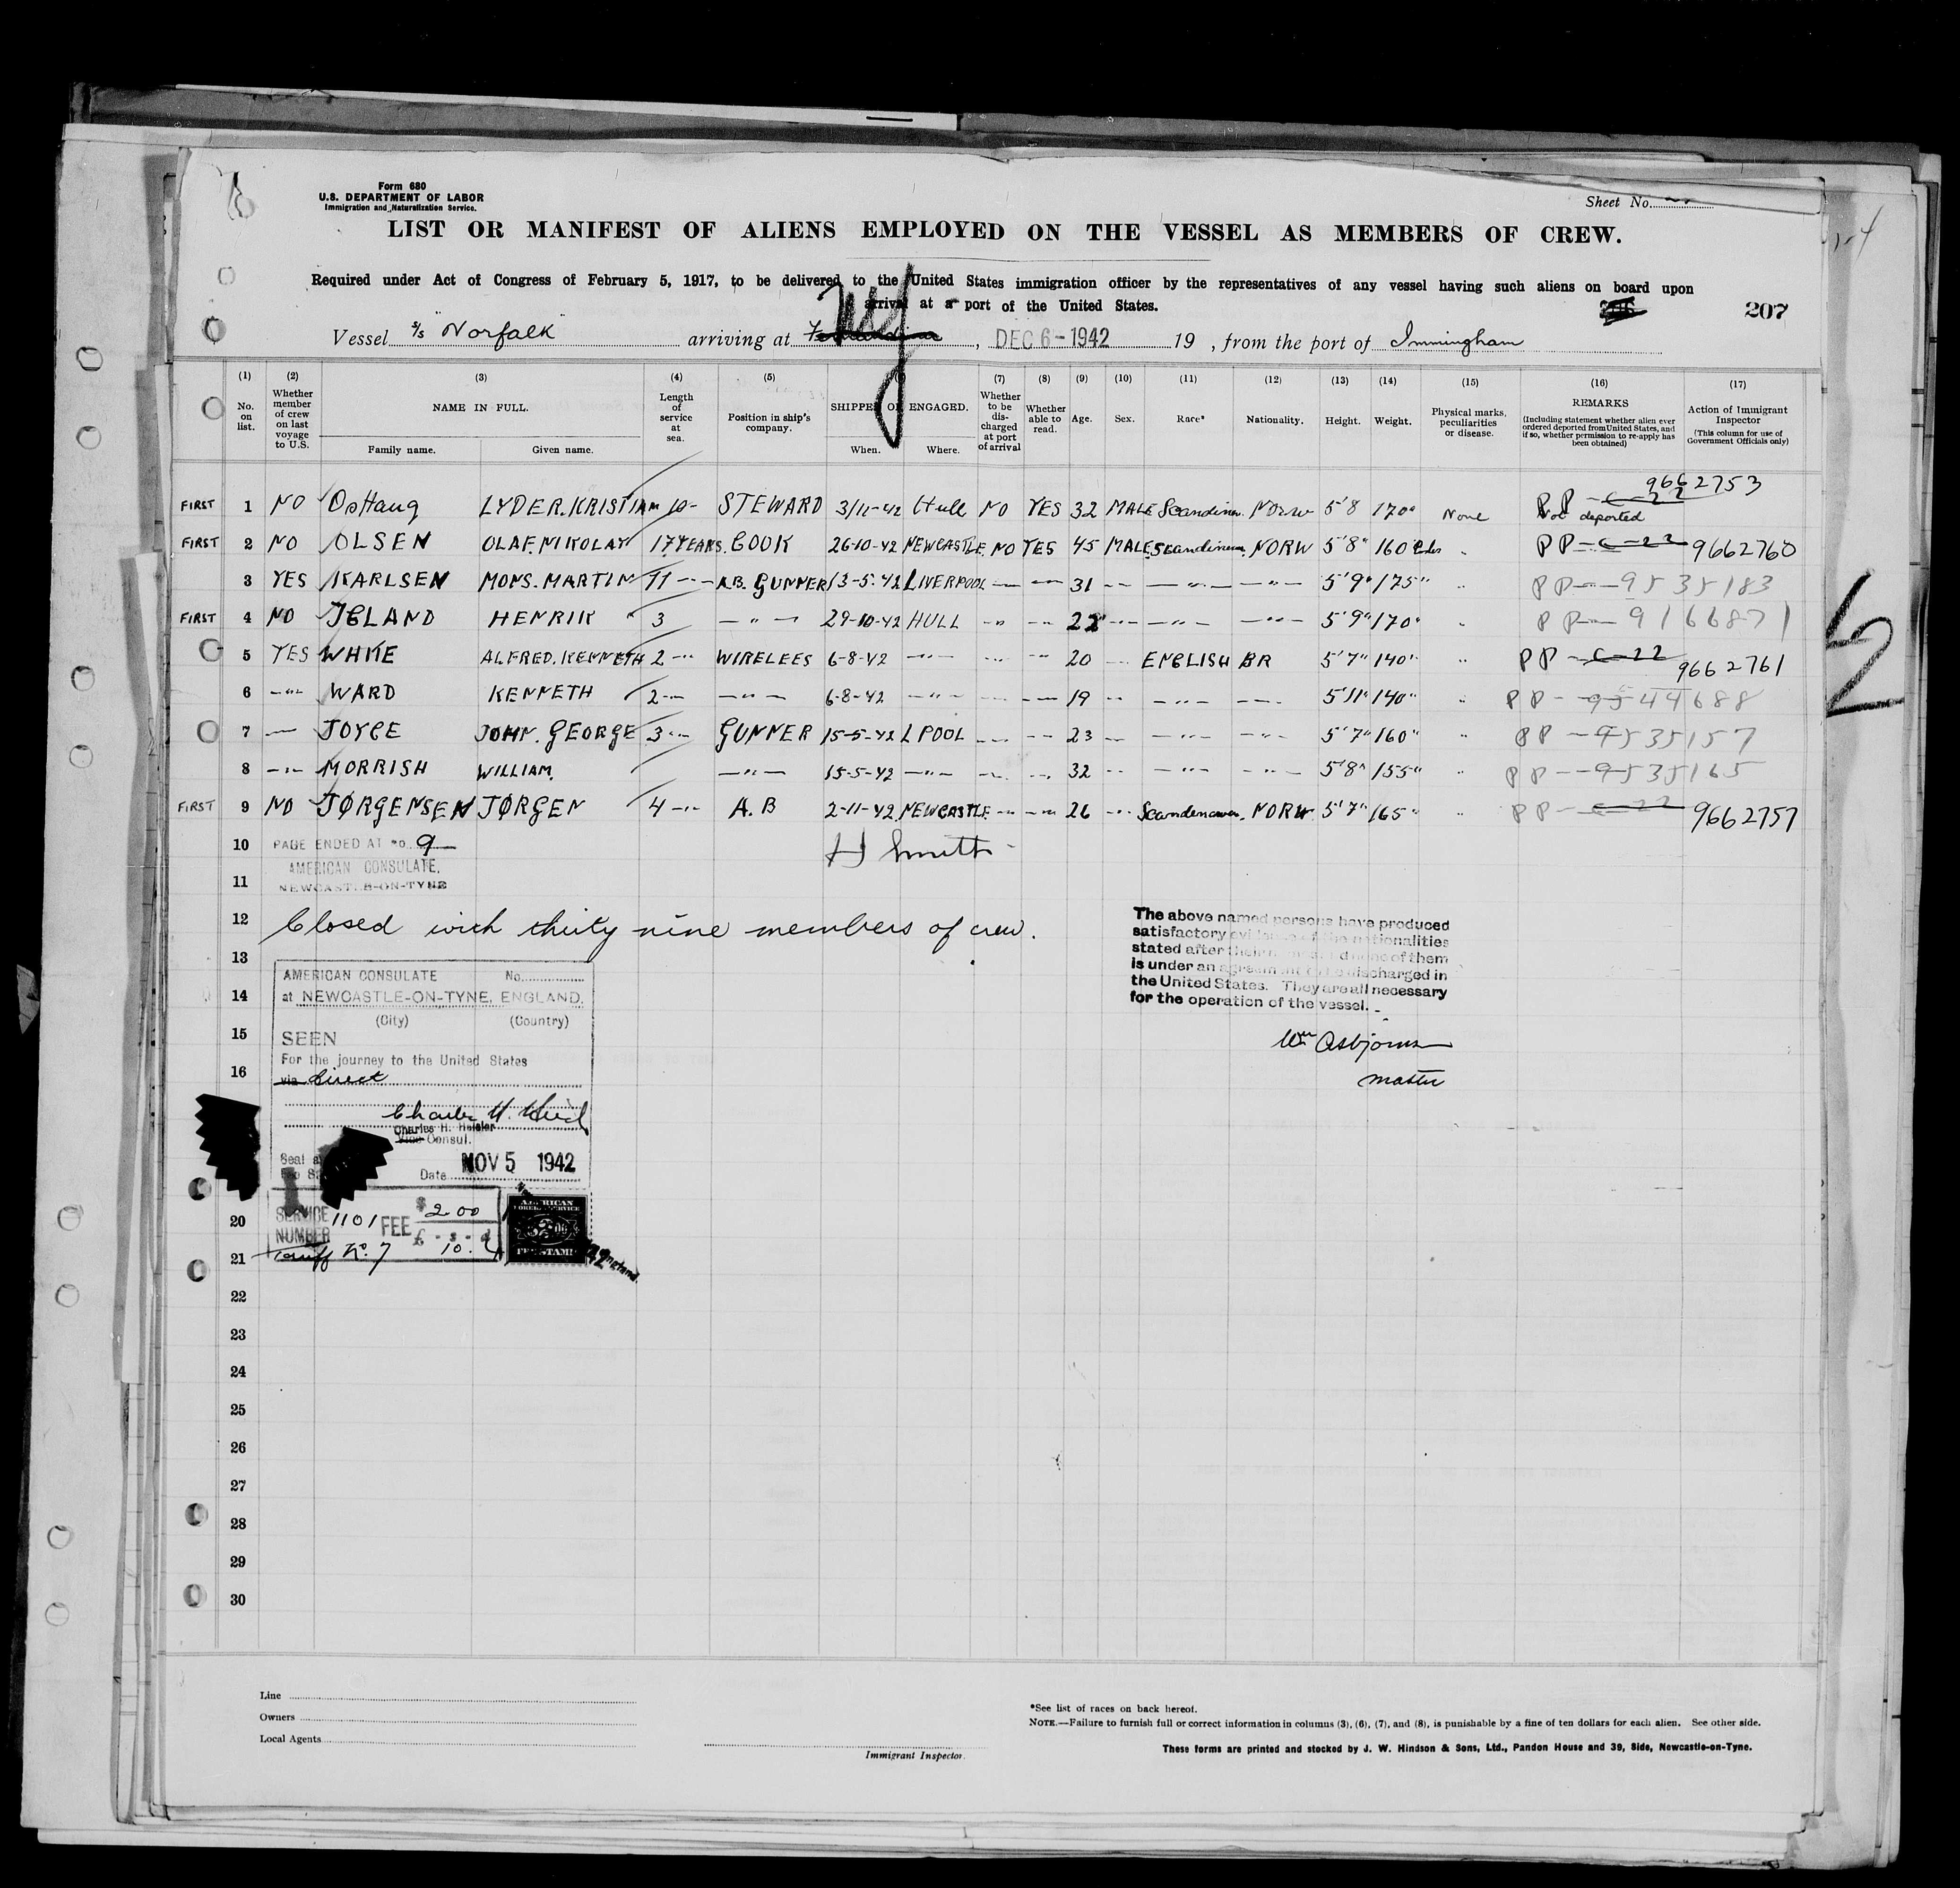 Form 680
U.S. DEPARTMENT OF LABOR
Immigration and Naturalization Service.
Sheet No.
LIST OR MANIFEST OF ALIENS EMPLOYED ON THE VESSEL AS MEMBERS OF CREW.
Required under Act of Congress of February 5, 1917, to be delivered to the United States immigration officer by the representatives of any vessel having such aliens on board upon
arrival at a port of the United States.
207
Vessel S/S "Norfalk" arriving at NY, DEC 6-1942 19 , from the port of Immingham
(1) (2) (3) (4) (5) (7) (8) (9) (10) (11) (12) (13) (14) (15) (16) (17)
No. on list. Whether member of crew on last voyage to U.S. NAME IN FULL. Family name. Given name. Length of service at sea. Position in ship's company. SHIPPED OR ENGAGED. When. Where. Whether to be discharged at port of arrival Whether able to read. Age. Sex. Race* Nationality. Height. Weight. Physical marks, peculiarities or disease. REMARKS (Including statement whether alien ever ordered deported from United States, and if so, whether permission to re-apply has been obtained) Action of Immigrant Inspector (This column for use of Government Officials only)
FIRST 1 NO OsHaug LYDER.KRISTIAN 10- STEWARD 3/11-42 Hull NO YES 32 MALE Scandinav. Norw 5'8 170" None PP - C-22 9662753 Not deported
FIRST 2 NO OLSEN OLAF.NIKOLAY 17 YEARS. COOK 26-10-42 NEWCASTLE. NO YES 45 MALE. Scandinav. NORW 5'8" 160 lbs " PP - C-22 9662760
3 YES KARLSEN MONS. MARTIN 11 -"- A.B. GUNNER 13-5-42 LIVERPOOL -"- -"- 31 -"- -"- -"- 5'9" 175" " PP - 9535183
FIRST 4 NO IGLAND HENRIK 3 -"- 29-10-42 HULL -"- -"- 22 -"- -"- -"- 5'9" 170" " PP - 9166871
5 YES WHITE ALFRED. KENNETH 2 -"- WIRELEES 6-8-42 -"- -"- -"- 20 -"- ENGLISH BR 5'7" 140" " PP - C-22 9662761
6 -"- WARD KENNETH 2 -"- -"- 6-8-42 -"- -"- -"- 19 -"- -"- -"- 5'11" 140" " PP - 9544688
7 -"- JOYCE JOHN. GEORGE 3 -"- GUNNER 15-5-42 L POOL -"- -"- 23 -"- -"- -"- 5'7" 160" " PP - 9535157
8 -"- MORRISH WILLIAM. -"- 15-5-42 -"- -"- -"- 32 -"- -"- -"- 5'8" 155" " PP - 9535165
FIRST 9 NO JØRGENSEN JØRGEN 4 -"- A.B 2-11-42 NEWCASTLE -"- -"- 26 -"- Scandenaven. NORW 5'7" 165" " PP - C-22 9662757
10 PAGE ENDED AT NO. 9 H Smith
AMERICAN CONSULATE.
11 NEWCASTLE-ON-TYNE
12 Closed with thirty nine members of crew.
The above named persons have produced
satisfactory evidence of the nationalities
stated after their names and none of them
is under an agreement to be discharged in
the United States. They are all necessary
for the operation of the vessel.
Wm Asbjornsen
Master
13 AMERICAN CONSULATE No.
14 at NEWCASTLE-ON-TYNE, ENGLAND.
(City) (Country)
15 SEEN
For the journey to the United States
16 via direct
Charles H. Heisler
Vice Consul.
Seal
Date NOV 5 1942
20 SERVICE NUMBER 1101 FEE $ 2.00
£ - s - d
21 Tariff No. 7 10.
AMERICAN FOREIGN SERVICE
FEE STAMP
22
23
24
25
26
27
28
29
30
Line
Owners
Local Agents
Immigrant Inspector.
*See list of races on back hereof.
NOTE.—Failure to furnish full or correct information in columns (3), (6), (7), and (8), is punishable by a fine of ten dollars for each alien. See other side.
These forms are printed and stocked by J. W. Hindson & Sons, Ltd., Pandon House and 39, Side, Newcastle-on-Tyne.